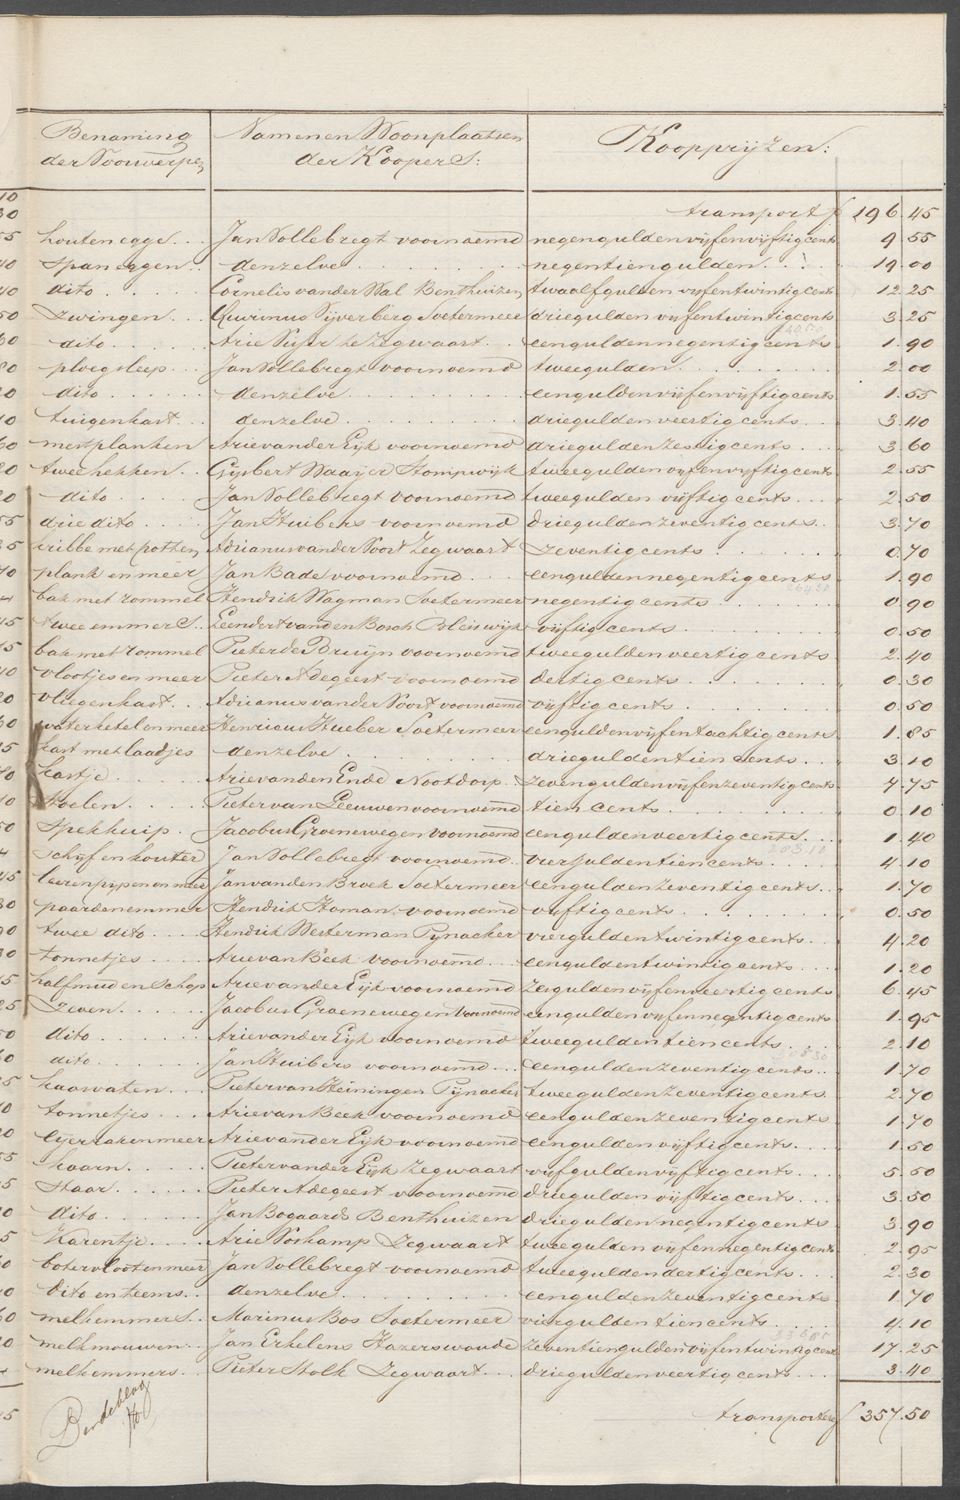 Benaming der Voorwerpen
Namen en Woonplaatsen der Koopers:
Koopprijzen:
transport f 196.45
houten egge... Jan Vollebregt voornoemd negengulden vijfenvijftig cents 9.55
span eggen.. denzelve negentiengulden 19.00
dito Cornelis van der Wal Benthuizen twaalfgulden vijfentwintig cents 12.25
zwingen Quirinus Sijverberg Soetermeer driegulden vijfentwintig cents 3.25
dito Arie te Zegwaart eengulden negentig cents 1.90
ploegsleep Jan Vollebregt voornoemd tweegulden 2.00
dito denzelve eengulden vijfenvijftig cents 1.55
tuigenkast denzelve driegulden veertig cents 3.40
mestplanken Arie van der Eijk voornoemd driegulden zestig cents 3.60
twee hekken Gijsbert Waaijer Stompwijk tweegulden vijfenvijftig cents 2.55
dito Jan Vollebregt voornoemd tweegulden vijftig cents 2.50
drie dito Jan Huibers voornoemd driegulden zeventig cents 3.70
kribbe met potten Adrianus van der Voort Zegwaart zeventig cents 0.70
plank en meer Jan Bade voornoemd eengulden negentig cents 1.90
bak met rommel Hendrik Wagman Soetermeer negentig cents 0.90
twee emmers Leendert van den Bosch Bleiswijk vijftig cents 0.50
bak met rommel Pieter de Bruijn voornoemd tweegulden veertig cents 2.40
vlootjes en meer Pieter Adegeest voornoemd dertig cents 0.30
vliegenkast Adrianus van der Voort voornoemd vijftig cents 0.50
waterketel en meer Henricus Hueber Soetermeer eengulden vijfentachtig cents 1.85
kast met laadjes denzelve driegulden tien cents 3.10
kastje Arie van den Ende Nootdorp zevengulden vijfenzeventig cents 7.75
stoelen Pieter van Leeuwen voornoemd tien cents 0.10
spekkuip Jacobus Groenewegen voornoemd eengulden veertig cents 1.40
schijf en kouter Jan Vollebregt voornoemd viergulden tien cents 4.10
leeren pijpen en meer Jan van den Broek Soetermeer eengulden zeventig cents 1.70
paardenemmer Hendrik Homan voornoemd vijftig cents 0.50
twee dito Hendrik Westerman Pijnacker viergulden twintig cents 4.20
tonnetjes Arie van Beek voornoemd eengulden twintig cents 1.20
halfmud en schop Arie van der Eijk voornoemd zesgulden vijfenveertig cents 6.45
zeven Jacobus Groenewegen voornoemd eengulden vijfennegentig cents 1.95
dito Arie van der Eijk voornoemd tweegulden tien cents 2.10
dito Jan Huibers voornoemd eengulden zeventig cents 1.70
kaasvaten Pieter van Heiningen Pijnacker tweegulden zeventig cents 2.70
tonnetjes Arie van Beek voornoemd eengulden zeventig cents 1.70
meer Arie van der Eijk voornoemd eengulden vijftig cents 1.50
kaarn Pieter van der Eijk Zegwaart vijfgulden vijftig cents 5.50
staar Pieter Adegeest voornoemd driegulden vijftig cents 3.50
dito Jan Bogaards Benthuizen driegulden negentig cents 3.90
Karentje Arie Voskamp Zegwaart tweegulden vijfennegentig cents 2.95
botervloot en meer Jan Vollebregt voornoemd tweegulden dertig cents 2.30
dito en teems denzelve eengulden zeventig cents 1.70
melkemmers Marinus Bos Soetermeer viergulden tien cents 4.10
melkmouwen Jan Erkelens Hazerswoude zeventiengulden vijfentwintig cents 17.25
melkemmers Pieter Stolk Zegwaart driegulden veertig cents 3.40
transporteeren f 357.50